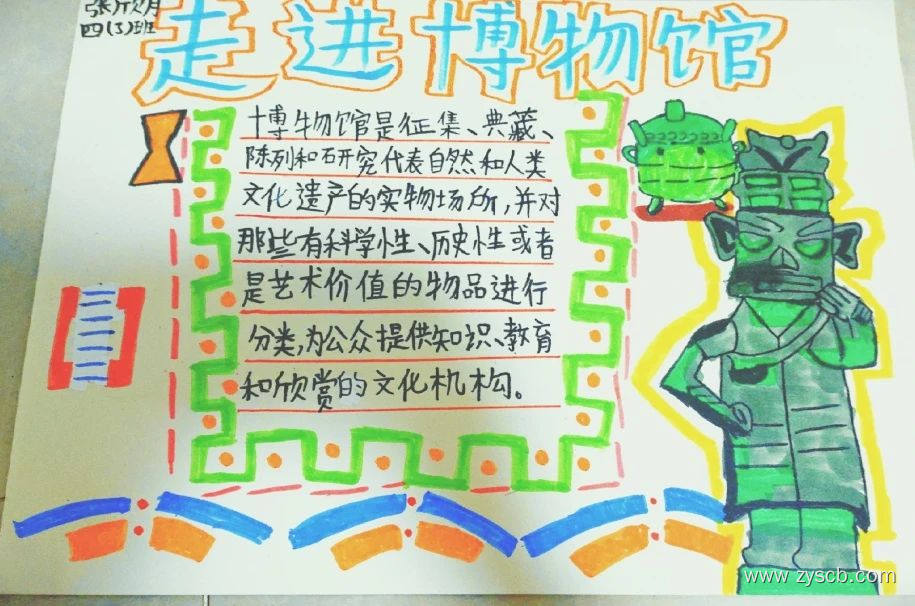 张欣月
四(3)班
走进博物馆
博物馆是征集、典藏、
陈列和研究代表自然和人类
文化遗产的实物场所,并对
那些有科学性、历史性或者
是艺术价值的物品进行
分类,为公众提供知识、教育
和欣赏的文化机构。
www.zyscb.com